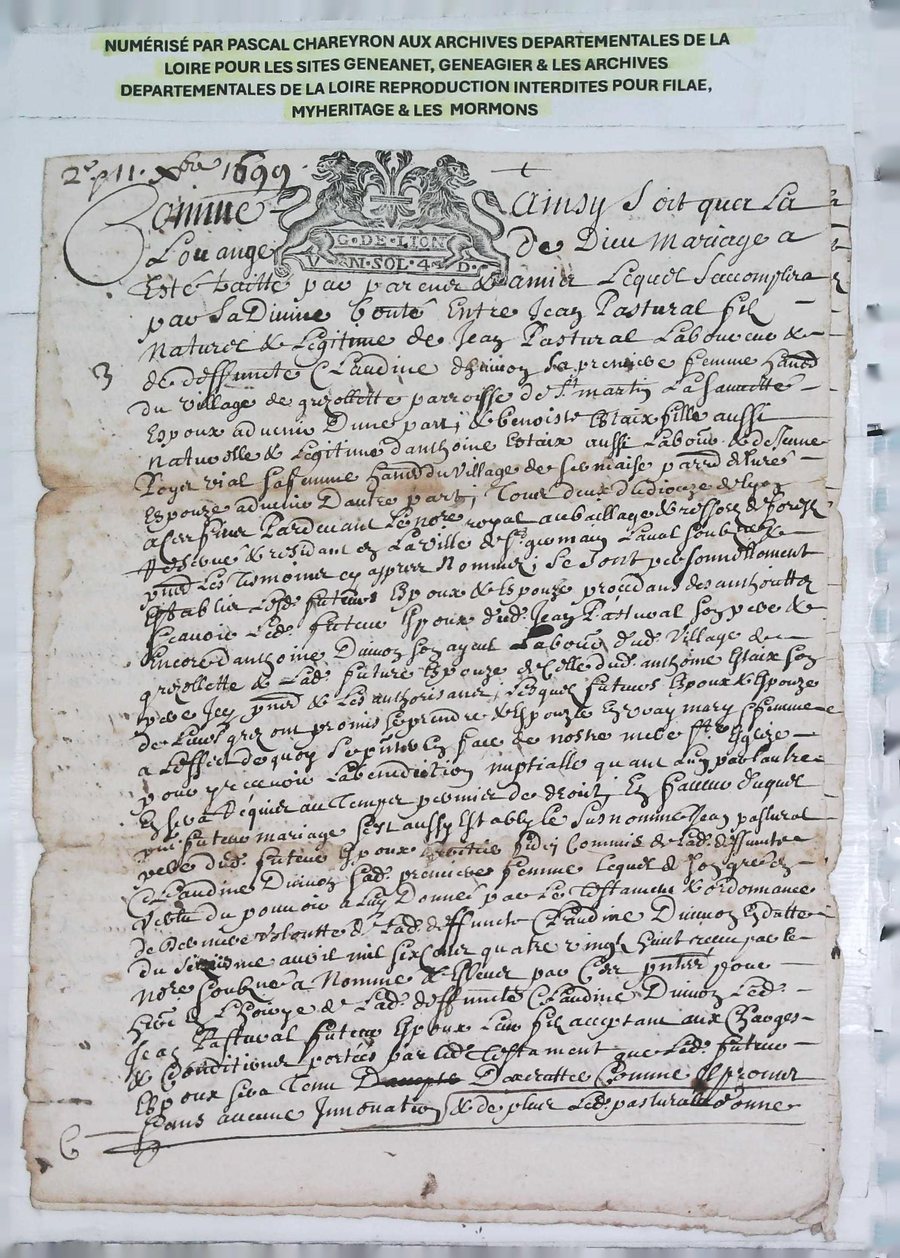 NUMÉRISÉ PAR PASCAL CHAREYRON AUX ARCHIVES DEPARTEMENTALES DE LA
LOIRE POUR LES SITES GENEANET, GENEAGIER & LES ARCHIVES
DEPARTEMENTALES DE LA LOIRE REPRODUCTION INTERDITES POUR FILAE,
MYHERITAGE & LES MORMONS
11. Xbre 1699
Comme Ainsy Soit que a La
G·DE·LION
Louange de Dieu Mariage a
V N·SOL·4·D·
Esté traitté par parens & amier Lequel Saccomplira
par Sa Divine bonté Entre Jean Pastural fil
Naturel & Legitime de Jean Pastural Laboureur &
3
de deffuncte Claudine Sa premiere femme
du village de grezollette parroisse de St martin La Sauvetté
Espoux advenir Dune part, & benoiste Estaix fille aussi
Naturelle & Legitime danthoine Estaix aussi Labour & de
vial Sa femme du village de
Espouze advenir Dautre part, Tous deux du dioceze de Lyon
Pardevant Le nore royal au bailliage & ressort de forestz
& residant en La ville de St germain Laval Soubzne &
Les Tesmoins cy apprer Nommez; Se Sont personnellement
Establis Lesd futurs Espoux & Espouze procedans des authorittez
Scavoir Led futeur Espoux dud Jean Pastural Son pere &
Encore danthoine Laboūr dud village de
grezollette & Lad future Espouze de Celle dud anthoine Estaix Son
pere Icy & Les authorisans, Lesquels futurs Espoux & Espouze
de Leurs grez ont promis Se prendre & Espouzer En vray mary & femme
a Leffect de quoy Se en face de nostre mere Ste Eglize
pour y recevoir La benediction nuptialle quant Lun par Lautre
En Sera Requier au Temps permier de droit, En faveur duquel
futeur mariage Sest aussy Estably Le Susnommé Jean pastural
pere dud futeur Espoux de Lad deffuncte
Claudine Lad premiere femme Lequel de Son gré &
vertu du pouvoir a Luy Donné par Le Testament & ordonnance
de derniere volontte de Lad deffuncte Claudine En datte
du avril mil Six Cens quatre vingt huit receu par le
Nore Soubzne a Nommé & Esleu par Ces pour
de Lad deffuncte Claudine Led
Jean Pastural futeur Espoux Leur fil acceptant aux Charges
& Conditions portées par led Testament que Led futeur
Espoux Sera Tenu Comme
Sans aucune Innovation & de plus Led pastural donne